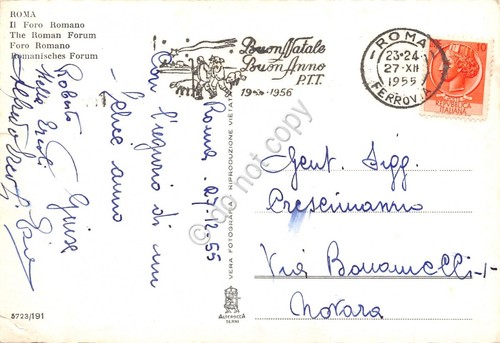 ROMA
Il Foro Romano
The Roman Forum
Foro Romano
Romanisches Forum
Buon Natale
Buon Anno
P.T.T.
1955 - 1956
ROMA
23-24
27·XII
1955
FERROVIA
10
REPUBBLICA
ITALIANA
Roma 27-12-55
Con l'augurio di un
felice anno
Roberto
Giuse
Gent. Sigg.
Crescimanno
Via Bonomelli-1-
Novara
VERA FOTOGRAFIA RIPRODUZIONE VIETATA
ALTEROCCA
TERNI
5723/191
do not copy